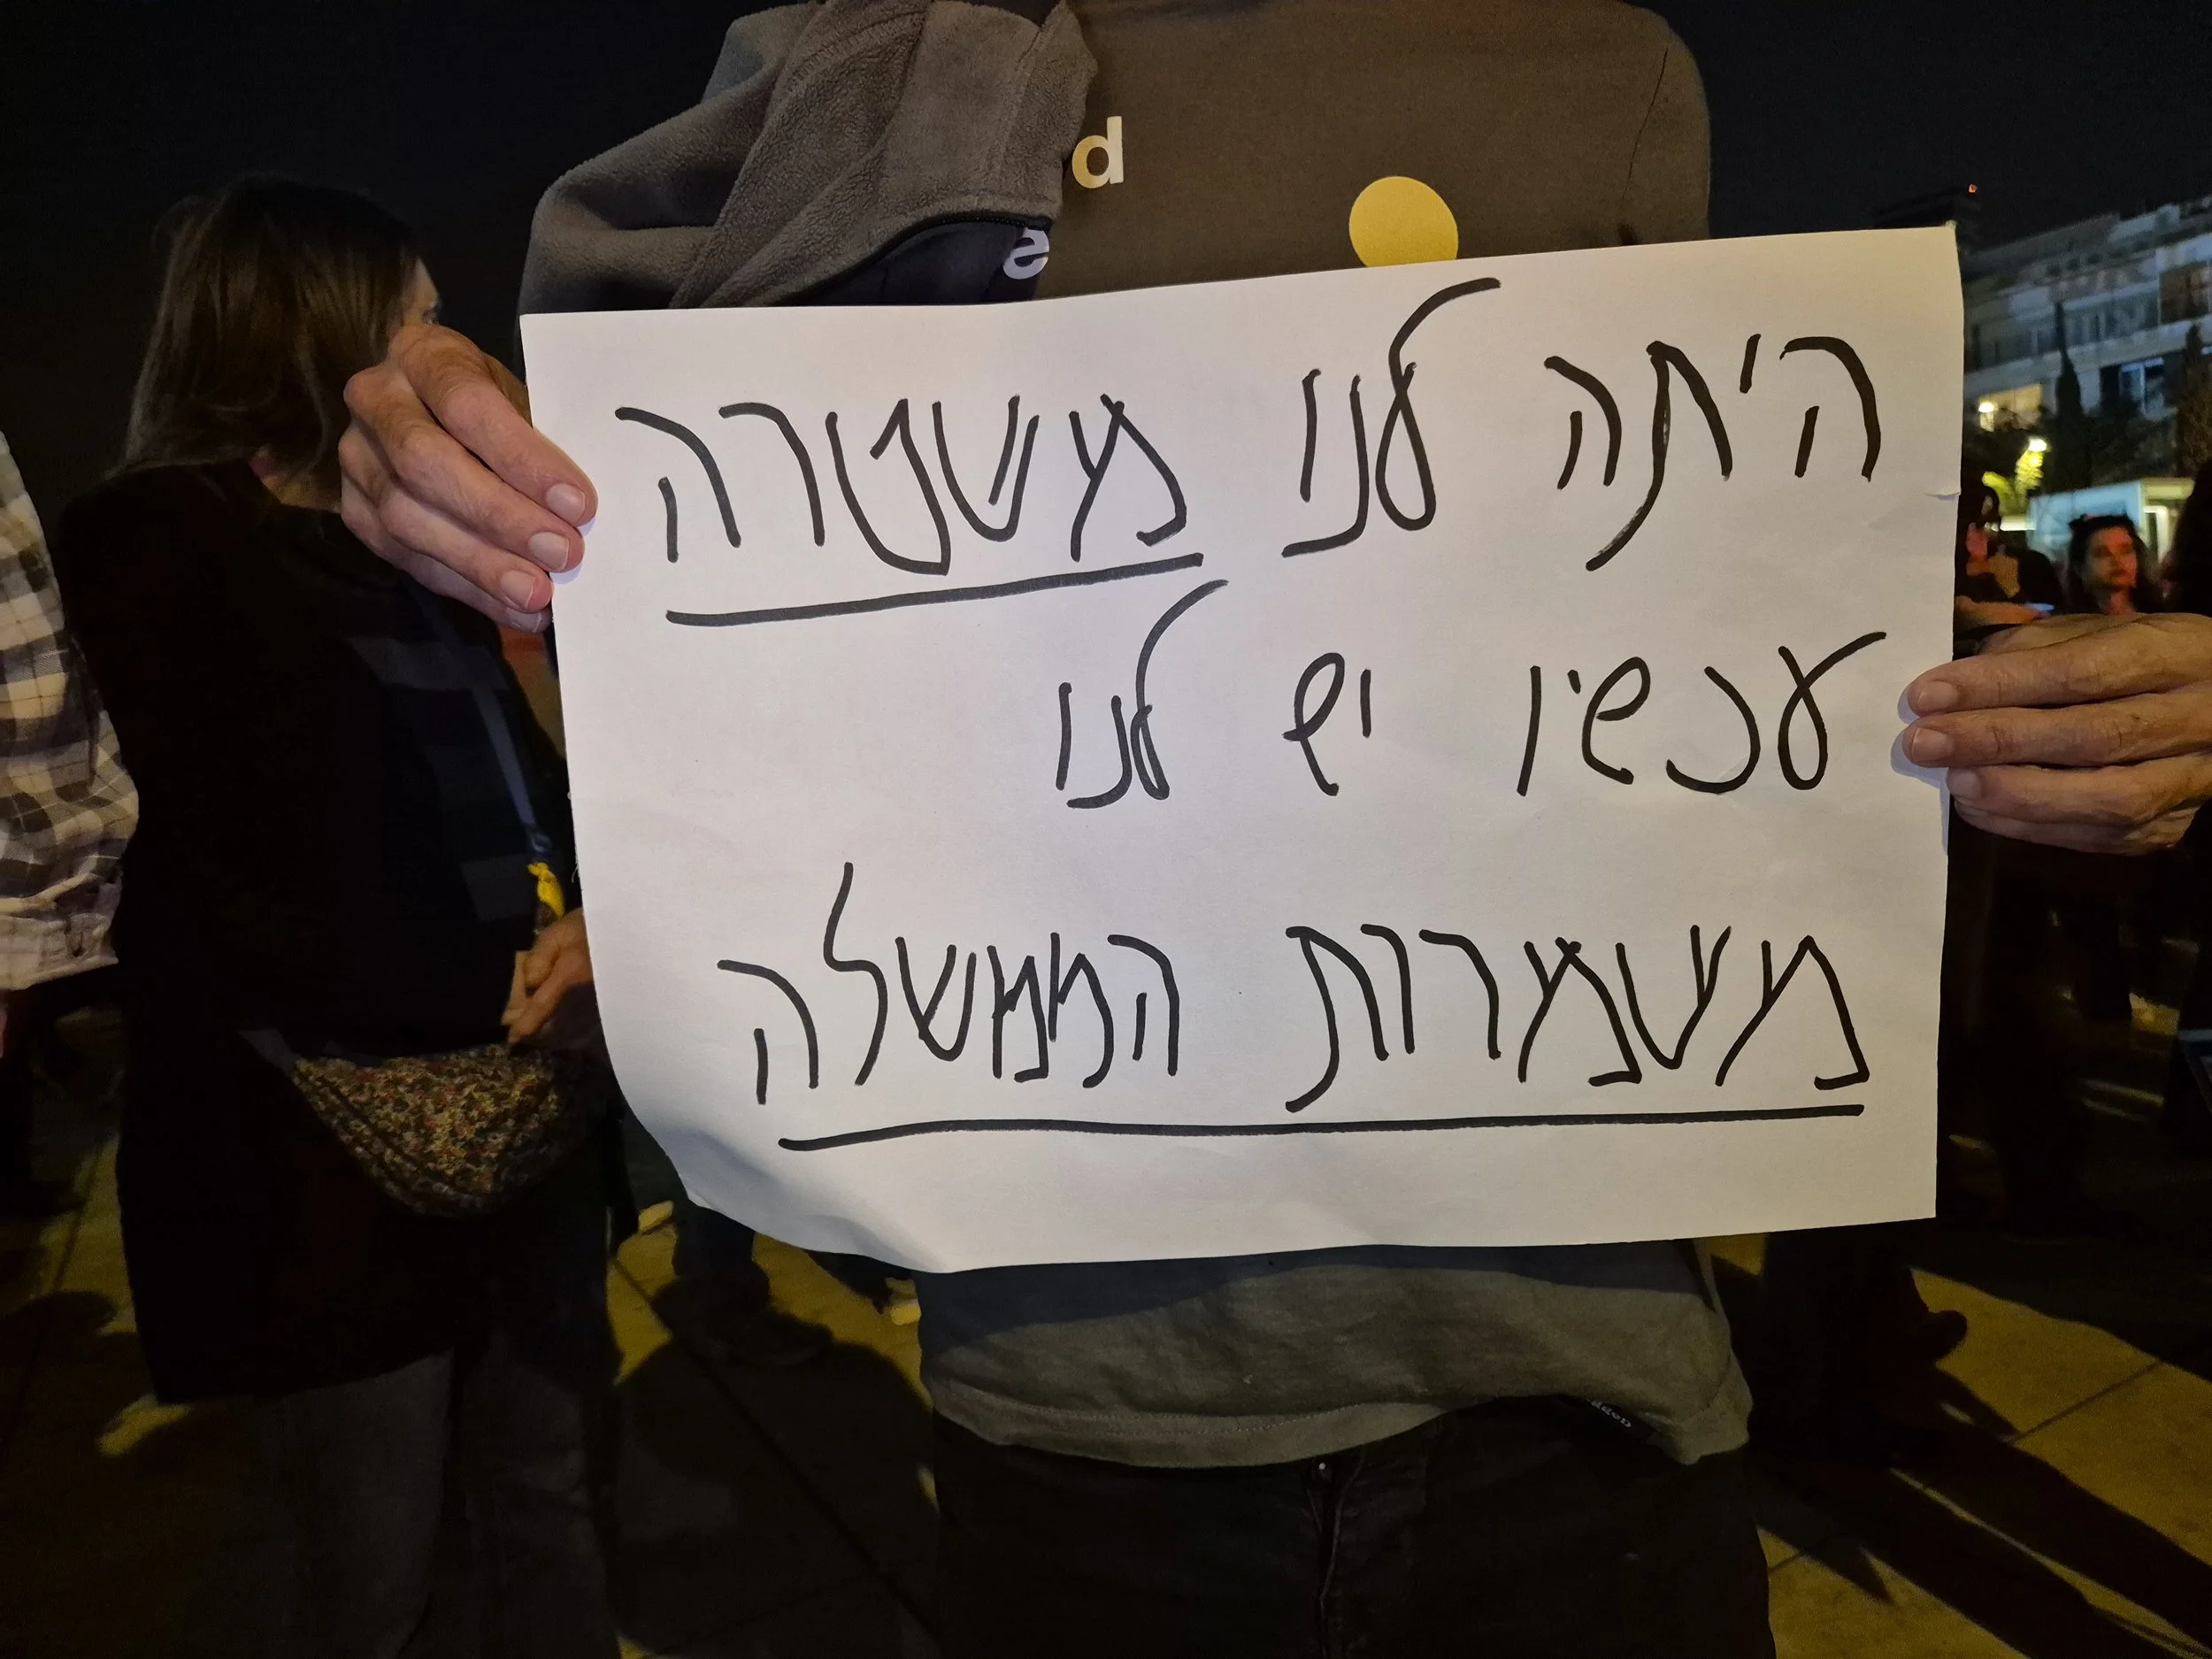 d
e
היתה לנו משטרה
עכשיו יש לנו
משמרות הממשלה